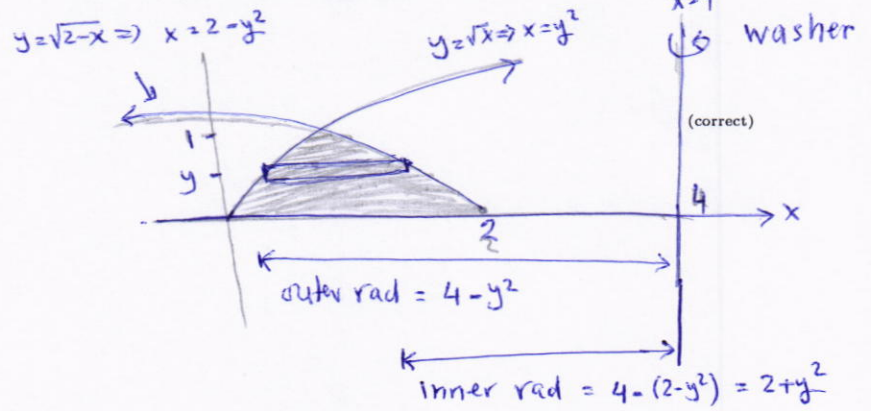 y=√2-x => x = 2-y²
y=√x => x=y²
washer
(correct)
1
y
2
4
x
outer rad = 4-y²
inner rad = 4-(2-y²) = 2+y²